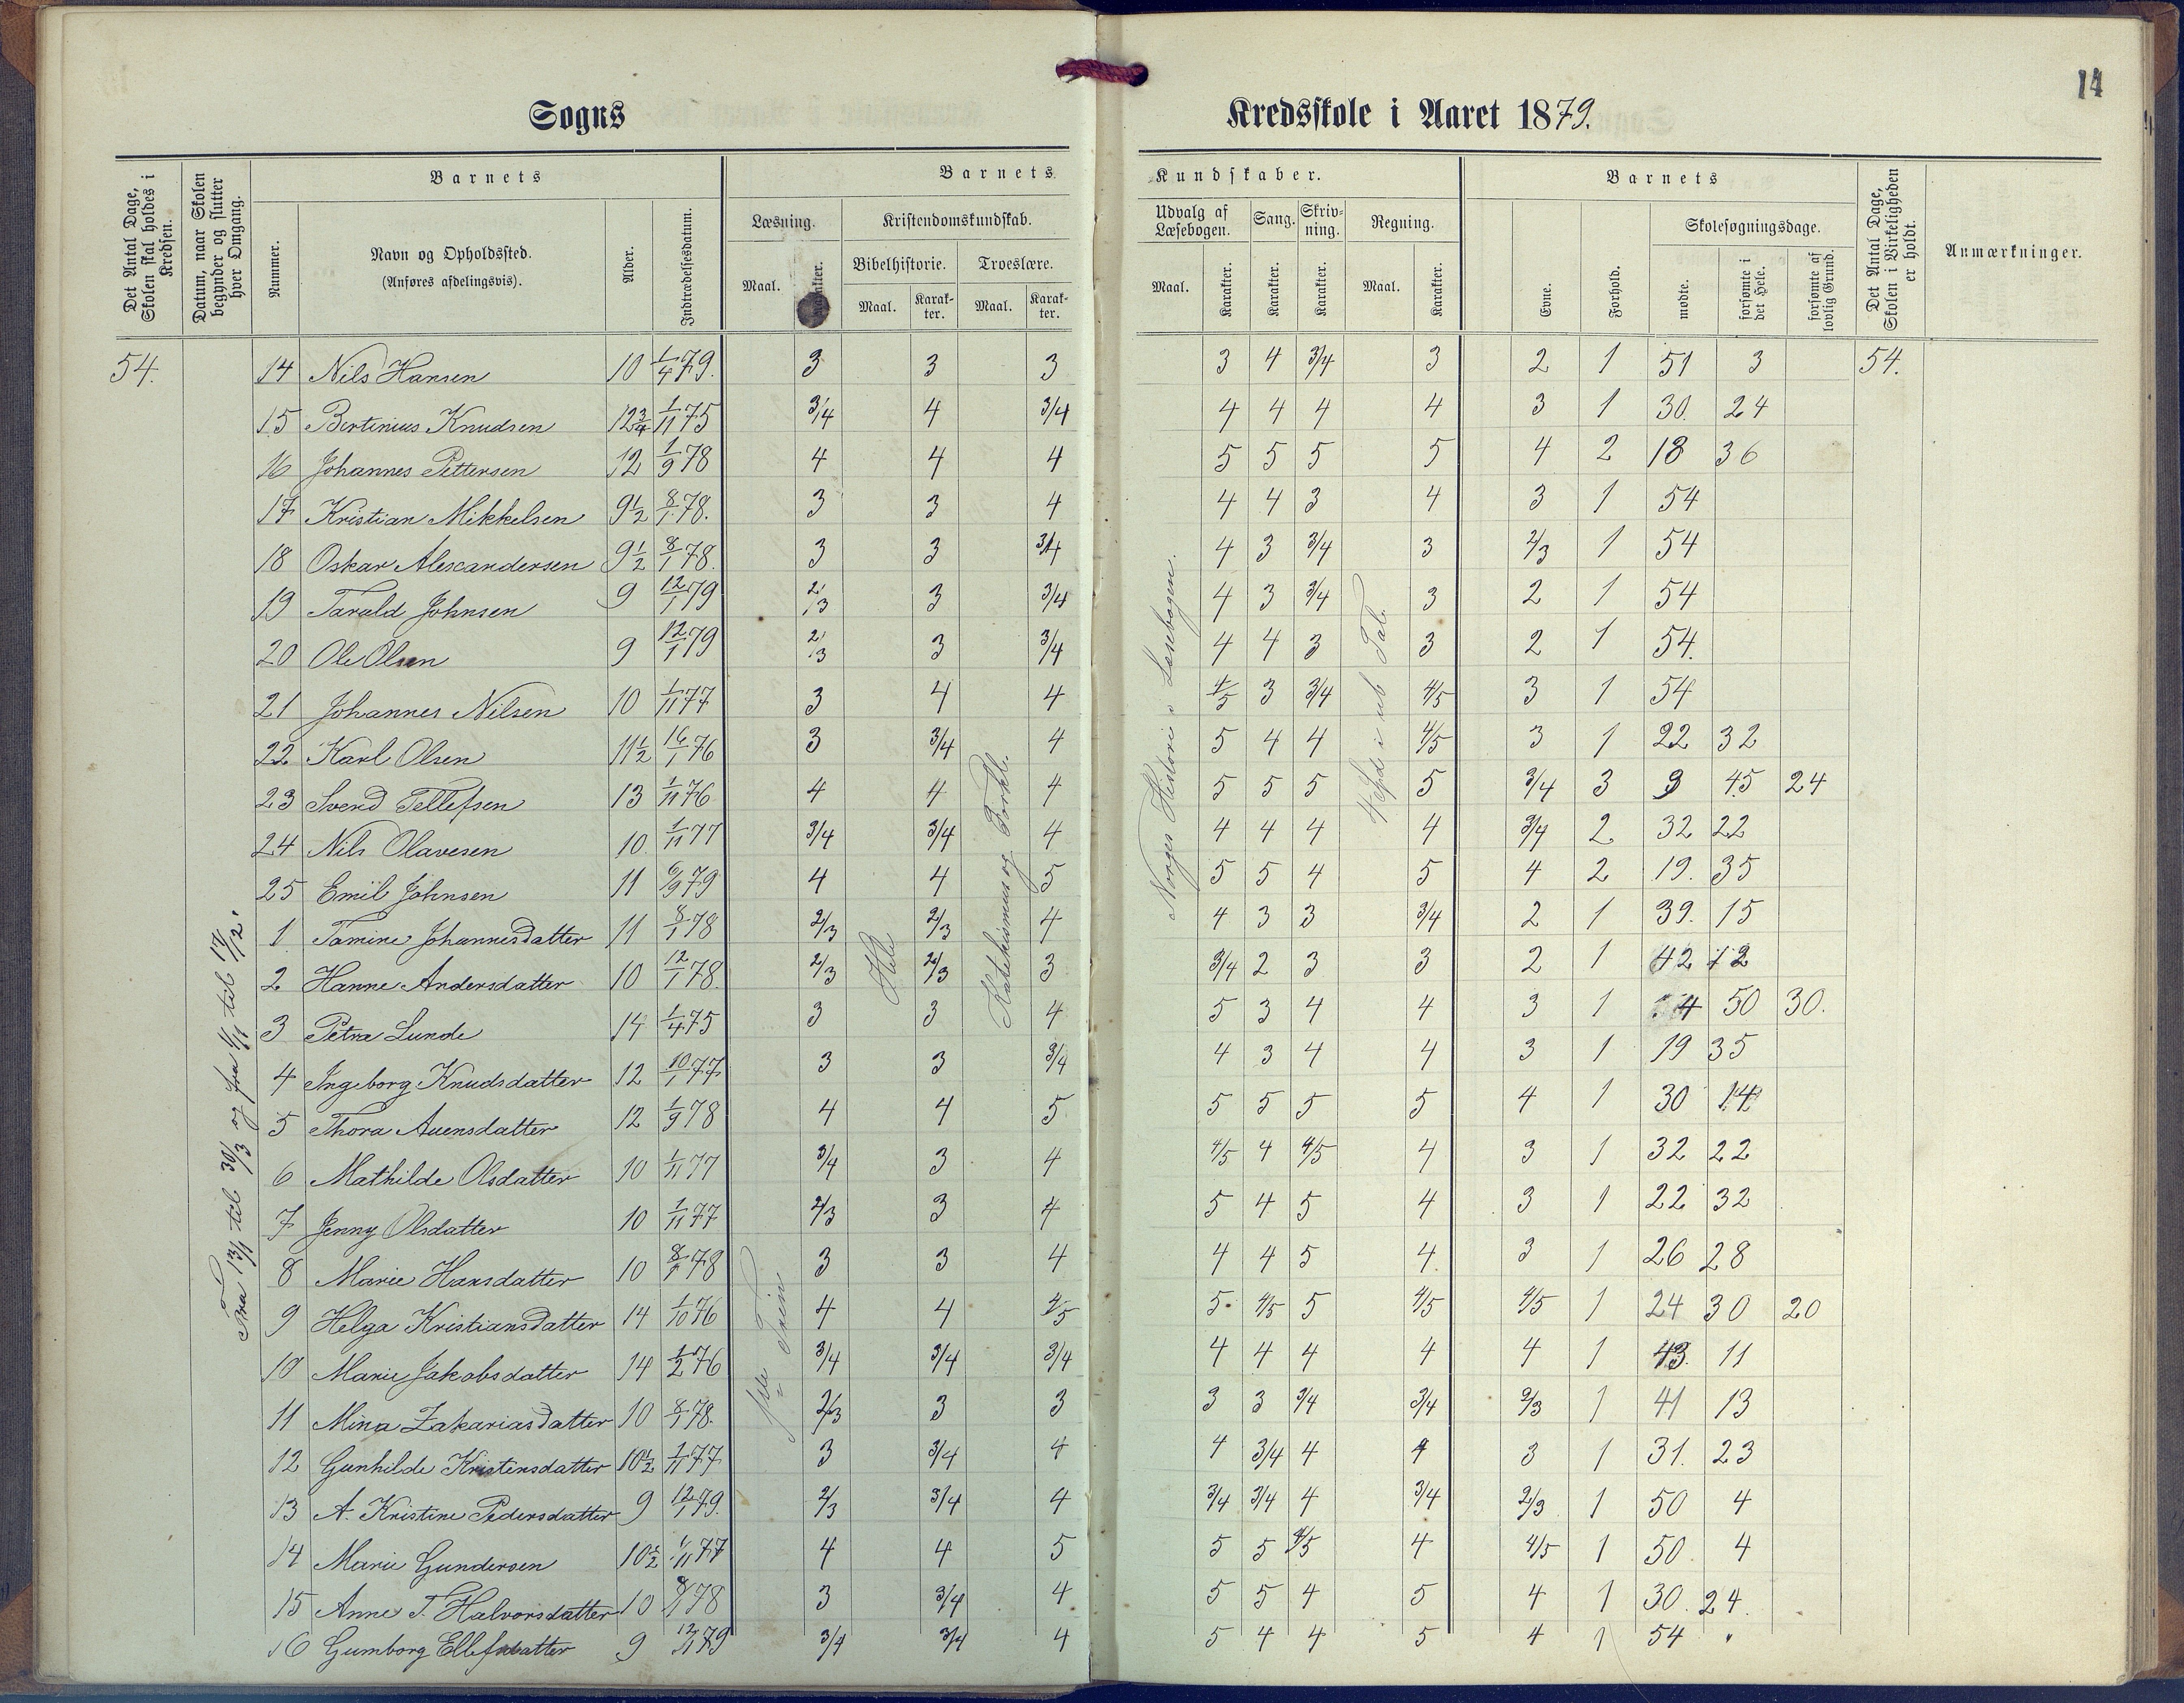 14
Sogns Kredsskole i Aaret 1879.
Det Antal Dage, Skolen skal holdes i Kredsen.
Datum, naar Skolen begynder og slutter hver Omgang.
Barnets
Nummer.
Navn og Opholdssted.
(Anføres afdelingsvis).
Alder.
Indtrædelsesdatum.
Barnets Kundskaber.
Læsning.
Maal.
Karakter.
Kristendomskundskab.
Bibelhistorie.
Maal.
Karakter.
Troeslære.
Maal.
Karakter.
Udvalg af Læsebogen.
Maal.
Karakter.
Sang.
Karakter.
Skrivning.
Karakter.
Regning.
Maal.
Karakter.
Barnets
Evne.
Forhold.
Skolesøgningsdage.
mødte.
forsømte i det Hele.
forsømte af lovlig Grund.
Det Antal Dage, Skolen i Virkeligheden er holdt.
Anmærkninger.
54. 14 Nils Hansen 10 1/4 79. 3 3 3 3 4 3/4 3 2 1 51 3 54.
15 Bertinius Knudsen 12 3/4 1/11 75 3/4 4 3/4 4 4 4 4 3 1 30. 24
16 Johannes Pettersen 12 1/9 78 4 4 4 5 5 5 5 4 2 18 36
17 Kristian Mikkelsen 9 1/2 8/1 78. 3 3 4 4 4 3 4 3 1 54
18 Oskar Alexandersen 9 1/2 8/1 78. 3 3 3/4 4 3 3/4 3 2/3 1 54
19 Tarald Johnsen 9 12/1 79 2/3 3 3/4 4 3 3/4 3 2 1 54
20 Ole Olsen 9 12/1 79 2/3 3 3/4 4 4 3 3 2 1 54.
21 Johannes Nilsen 10 1/11 77 3 4 4 4/5 3 3/4 4/5 3 1 54
22 Karl Olsen 11 1/2 16/1 76 3 3/4 4 5 4 4 4/5 3 1 22 32
23 Svend Tellefsen 13 1/11 76 4 4 4 5 5 5 5 3/4 3 9 45 24
24 Nils Olavesen 10. 1/11 77 3/4 3/4 4 4 4 4 4 3/4 2 32 22
25 Emil Johnsen 11 6/9 79 4 4 5 5 5 4 5 4 2 19. 35
1 Tamine Johannesdatter 11 8/1 78 2/3 2/3 4 4 3 3 3/4 2 1 39. 15
2 Hanne Andersdatter 10 12/1 78. 2/3 2/3 3 3/4 2 3 3 2 1 42 12
3 Petra Lunde 14 1/4 75 3 3 4 5 3 4 4 3 1 4 50 30.
4 Ingeborg Knudsdatter 12 10/1 77 3 3 3/4 4 3 4 4 3 1 19 35
5 Thora Auensdatter 12 1/9 78 4 4 5 5 5 5 5 4 1 30 14
6 Mathilde Olsdatter 10 1/11 77 3/4 3 4 4/5 4 4/5 4 3 1 32 22
7 Jenny Olsdatter 10 1/11 77 2/3 3 4 5 4 5 4 3 1 22 32
8 Marie Hansdatter 10 8/1 78 3 3 4 4 4 5 4. 3 1 26 28
9 Helga Kristiansdatter 14 1/10 76 4 4 4/5 5 4/5 5 4/5 4/5 1 24 30 20
10 Marie Jakobsdatter 14 1/2 76 3/4 3/4 3/4 4 4 4 4 4 1 43. 11
11 Mina Zakariasdatter 10 8/1 78. 2/3 3 3 3 3 3/4 3/4 2/3 1 41 13
12 Gunhilde Kristensdatter 10 1/2 1/11 77 3 3/4 4 4 3/4 4 4 3 1 31. 23
13 A. Kristine Pedersdatter 9 12/1 79. 2/3 3/4 4 3/4 3/4 4 3/4 2/3 1 50 4
14 Marie Gundersen 10 1/2 1/11 77 4 4 5 5 5 4/5 4 4/5 1 50. 4
15 Anne T. Halvorsdatter 10 8/1 78 3 3/4 4 5 5 4 5 4 1 30. 24.
16 Gumborg Ellefsdatter 9 12/1 79 3/4 3/4 4 5 4 4 5 4 1 54 "
Fra 13/1 til 30/3 og fra 1/11 til 17/12.
Hele
Katekismus og Forkl.
Norges Historie i Læsebogen.
Tal.